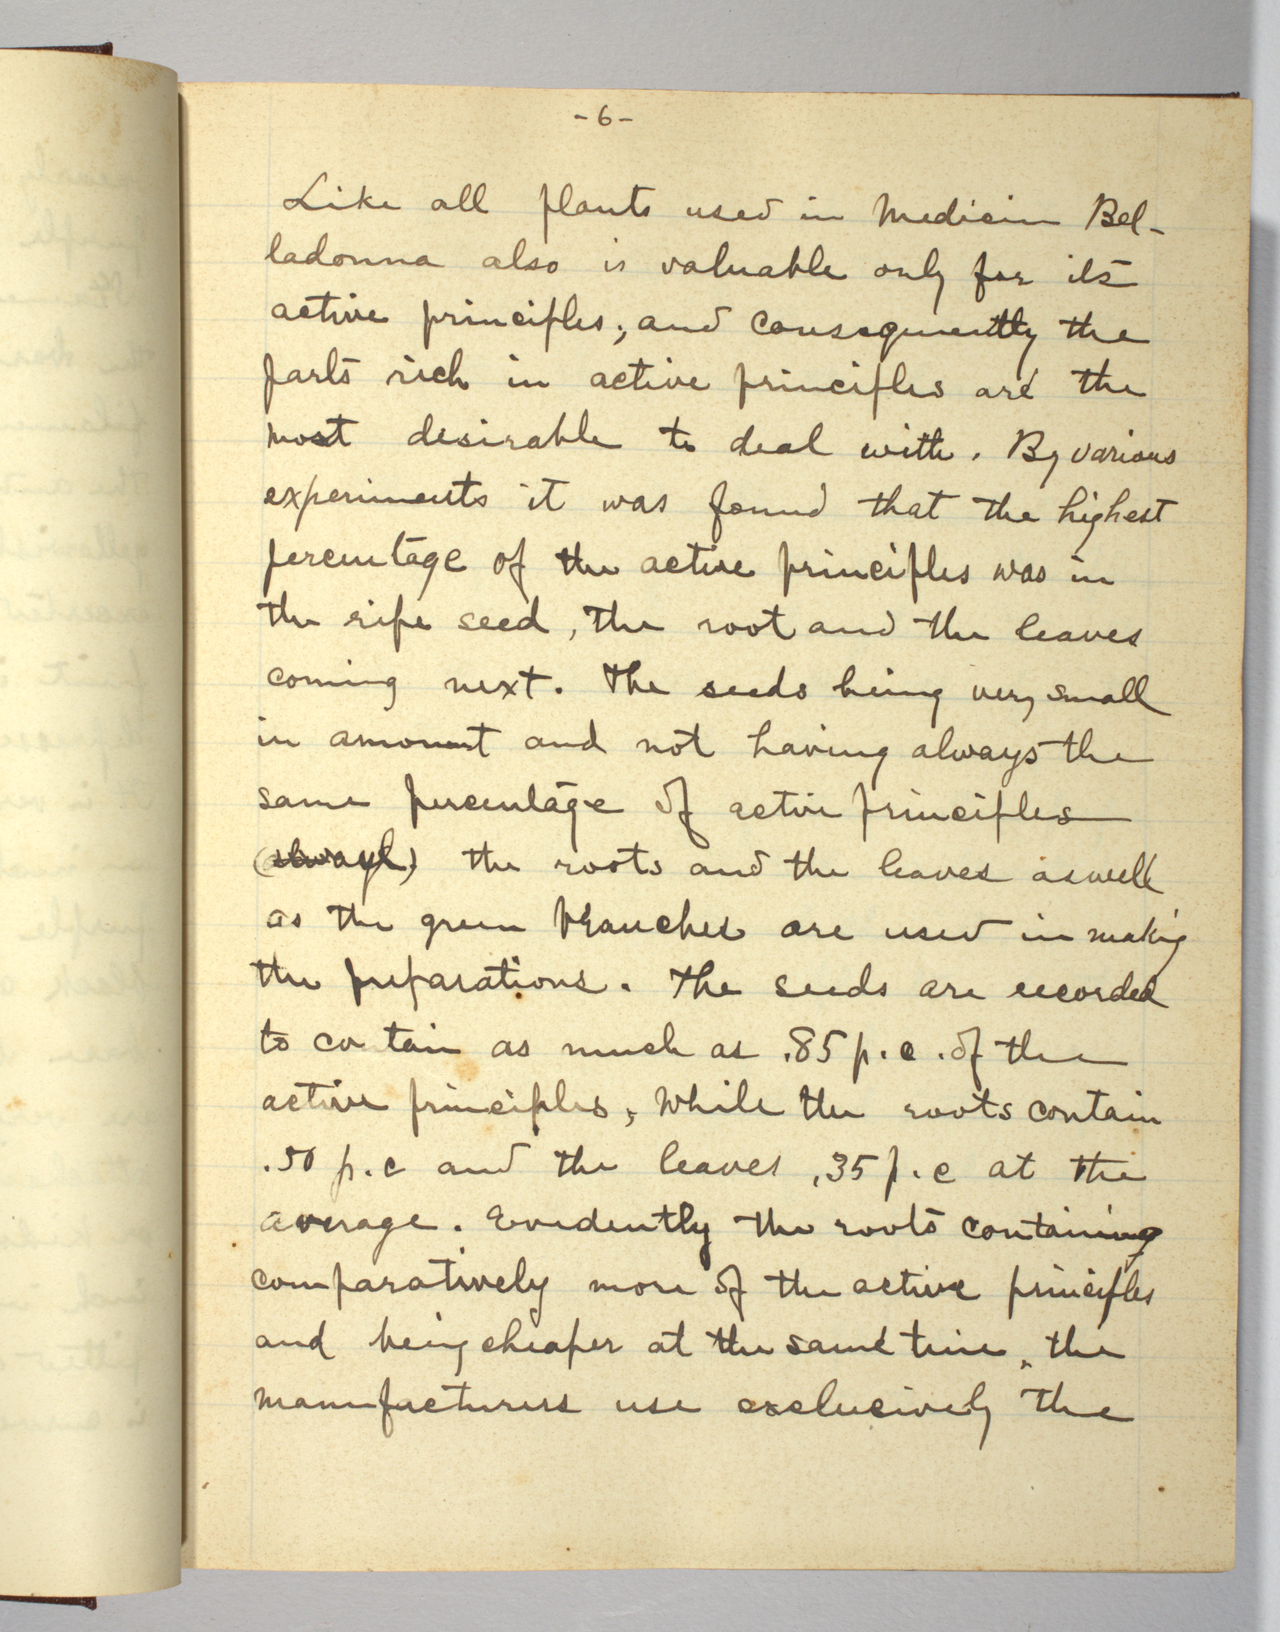 -6-
Like all plants used in Medicin Bel-
ladonna also is valuable only for its
active principles, and consequently the
parts rich in active principles are the
most desirable to deal with. By various
experiments it was found that the highest
percentage of the active principles was in
the ripe seed, the root and the leaves
coming next. The seeds being very small
in amount and not having always the
same percentage of active principles
(always) the roots and the leaves as well
as the green branches are used in making
the preparations. The seeds are recorded
to co tain as much as .85 p.c. of the
active principles, while the roots contain
.50 p.c and the leaves .35 p.c at the
average. Evidently the roots containing
comparatively more of the active principles
and being cheaper at the same time, the
manufacturers use exclusively the